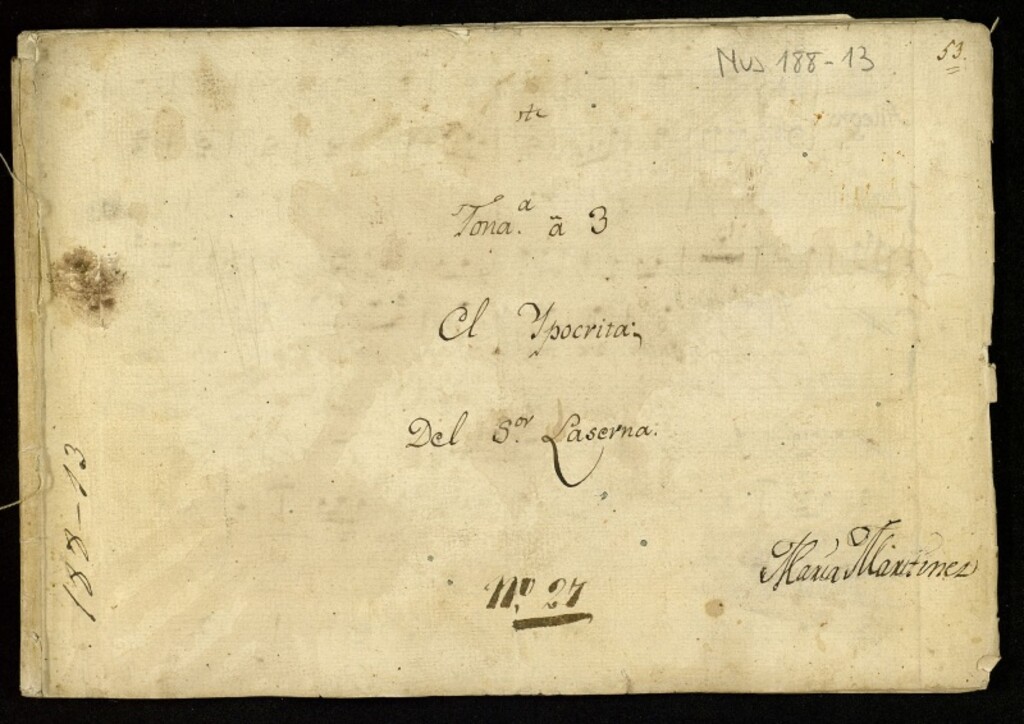 Mus 188-13
53.
Tona.ª â 3
El Ypocrita
Del S.or Laserna.
188-13
Maria Martinez
N.º 27